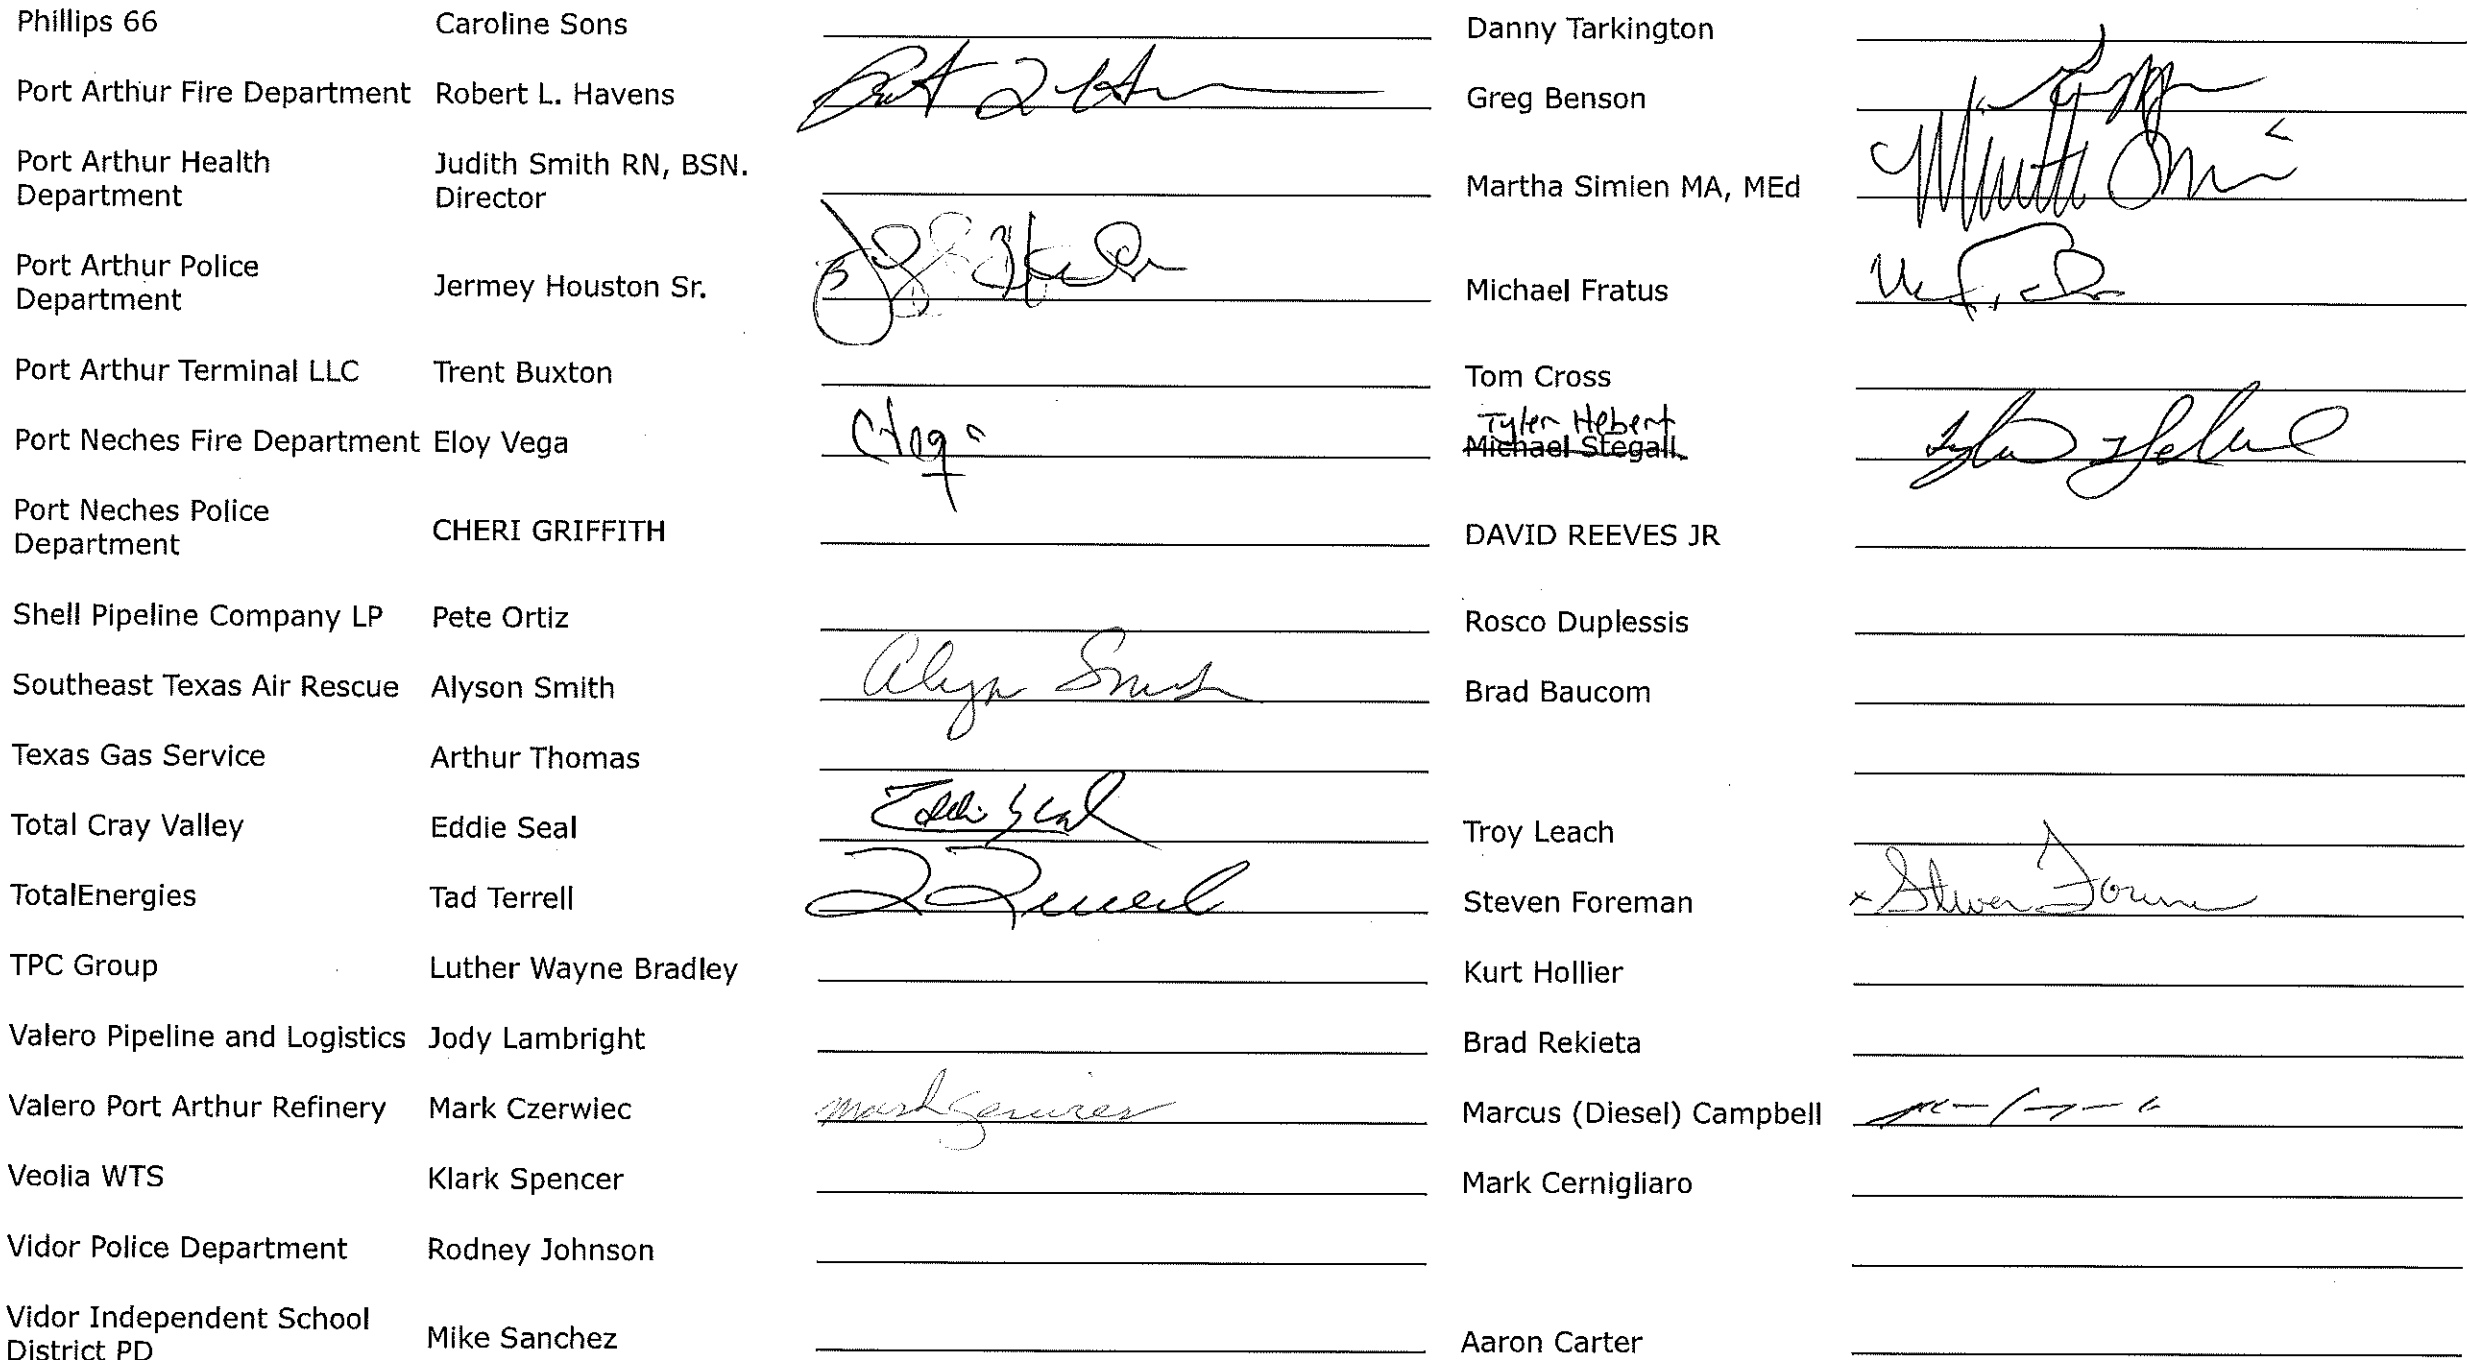 Phillips 66 Caroline Sons Danny Tarkington
Port Arthur Fire Department Robert L. Havens Greg Benson
Port Arthur Health Department Judith Smith RN, BSN. Director Martha Simien MA, MEd
Port Arthur Police Department Jermey Houston Sr. Michael Fratus
Port Arthur Terminal LLC Trent Buxton Tom Cross
Tyler Hebert
Port Neches Fire Department Eloy Vega Michael Stegall Tyler Hebert
Port Neches Police Department CHERI GRIFFITH DAVID REEVES JR
Shell Pipeline Company LP Pete Ortiz Rosco Duplessis
Southeast Texas Air Rescue Alyson Smith Alyson Smith Brad Baucom
Texas Gas Service Arthur Thomas
Total Cray Valley Eddie Seal Eddie Seal Troy Leach
TotalEnergies Tad Terrell Steven Foreman x Steven Foreman
TPC Group Luther Wayne Bradley Kurt Hollier
Valero Pipeline and Logistics Jody Lambright Brad Rekieta
Valero Port Arthur Refinery Mark Czerwiec Marcus (Diesel) Campbell
Veolia WTS Klark Spencer Mark Cernigliaro
Vidor Police Department Rodney Johnson
Vidor Independent School District PD Mike Sanchez Aaron Carter